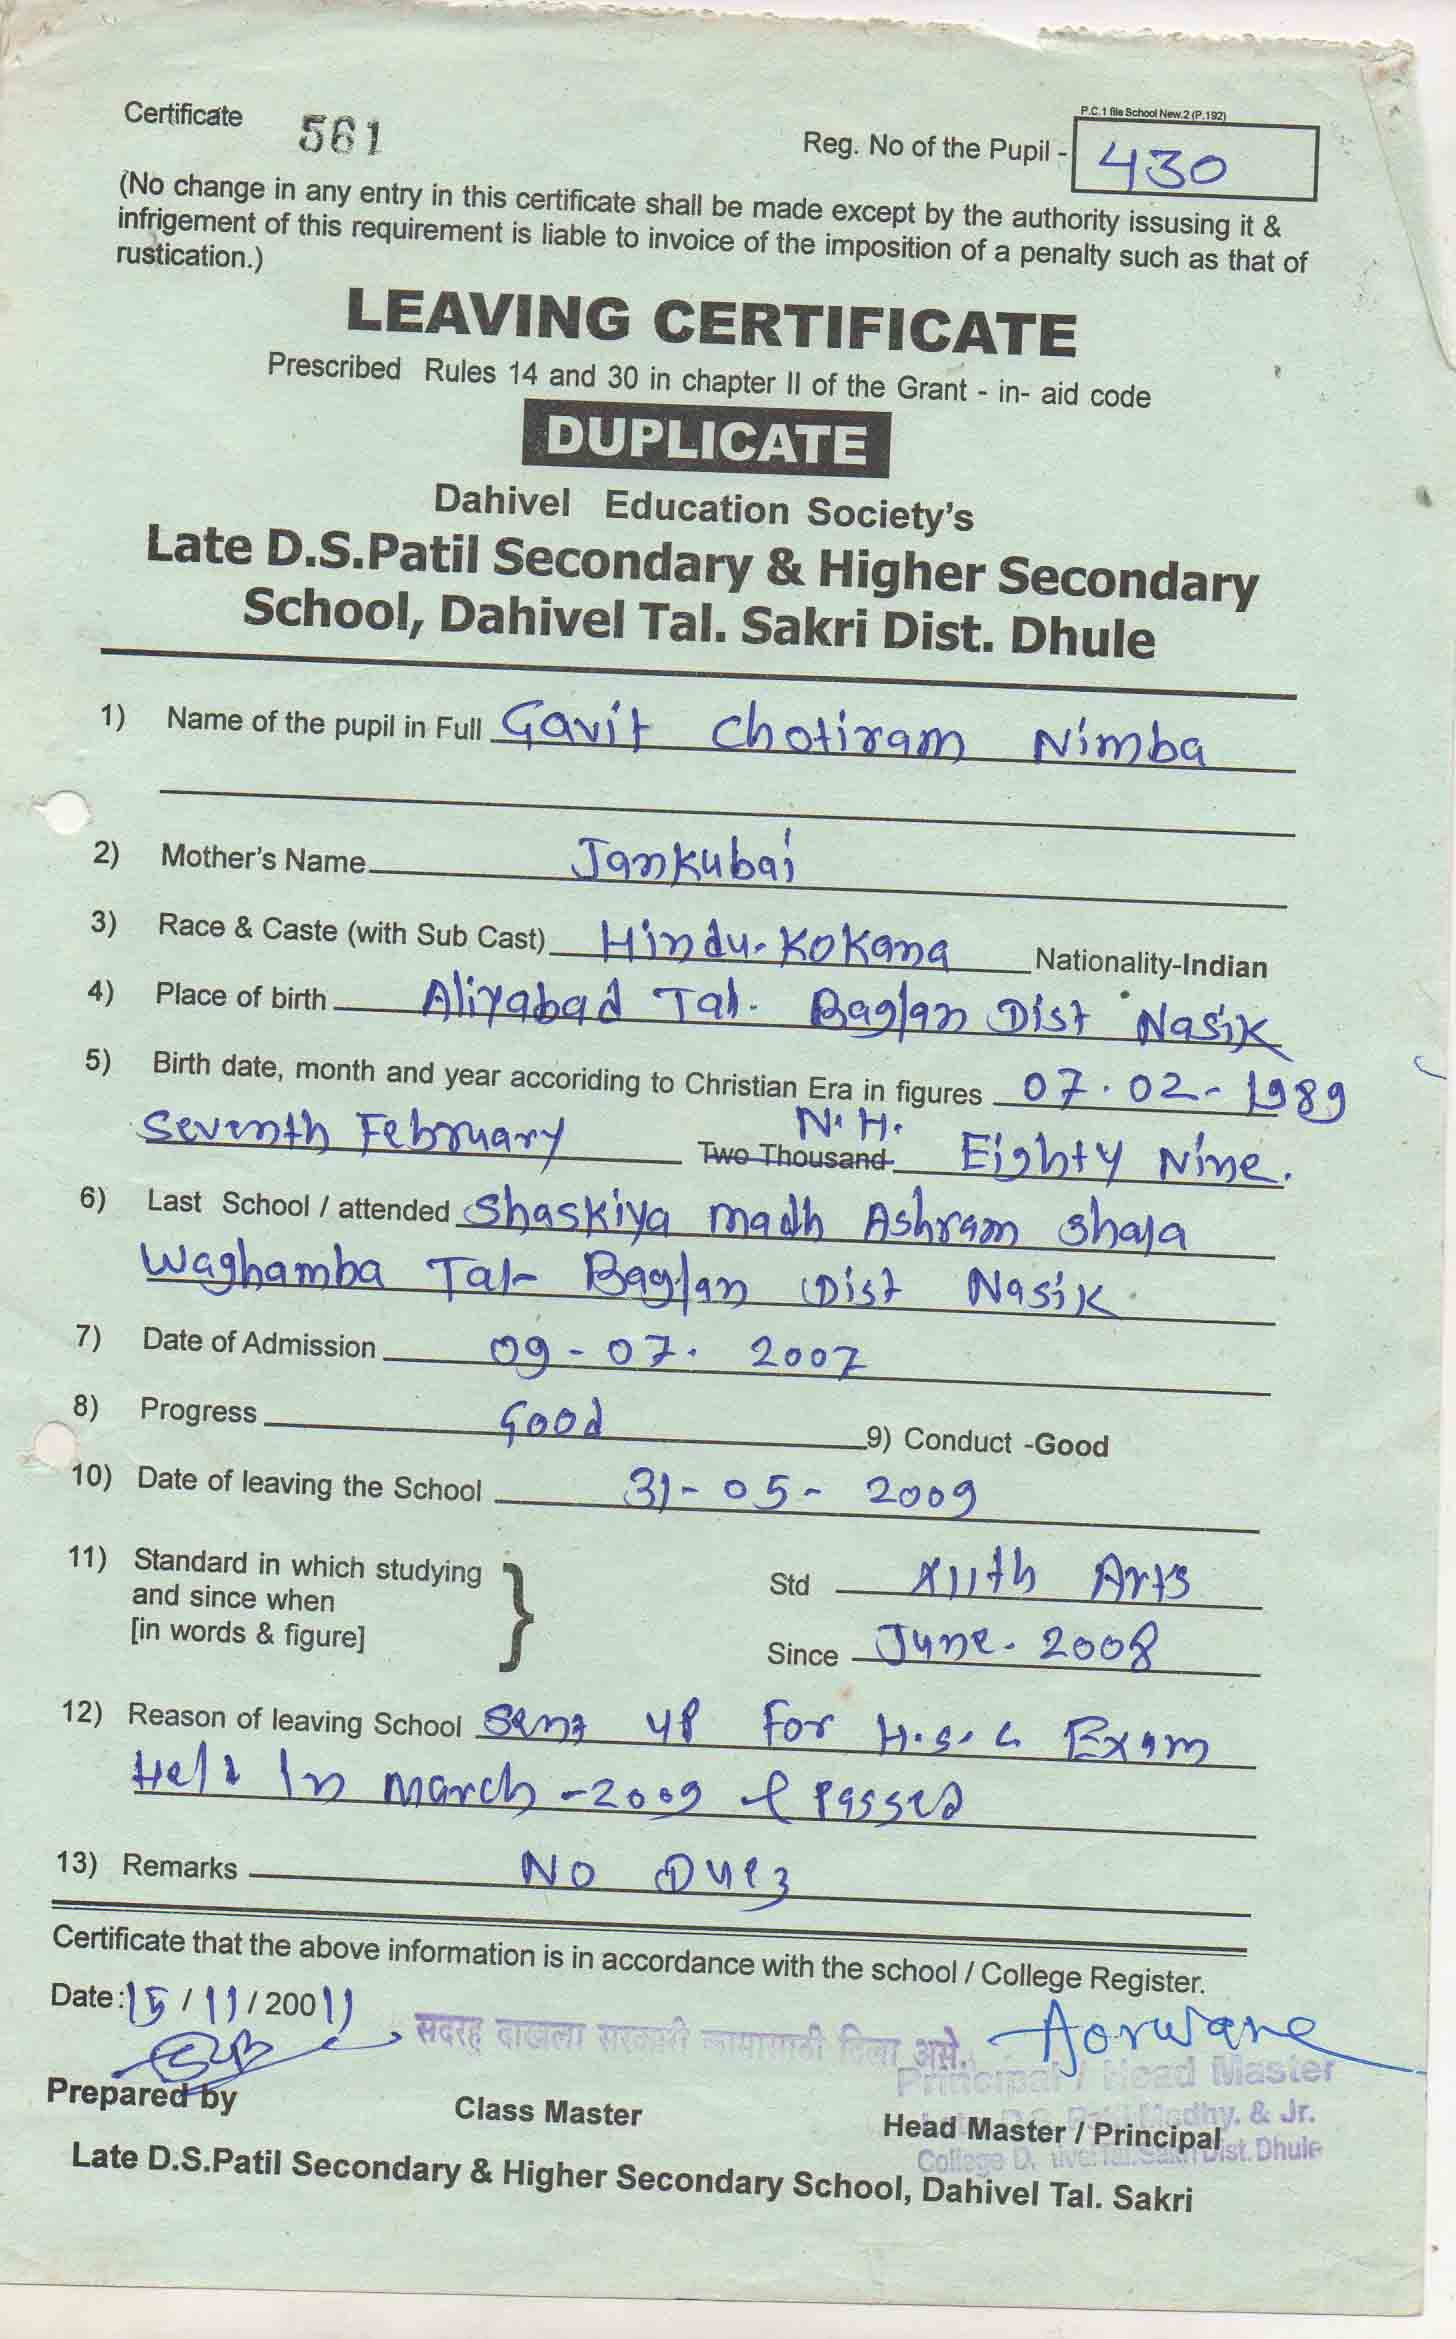 P.C.1 file School New.2 (P.192)
Certificate 561
Reg. No of the Pupil - 430
(No change in any entry in this certificate shall be made except by the authority issusing it &
infrigement of this requirement is liable to invoice of the imposition of a penalty such as that of
rustication.)
LEAVING CERTIFICATE
Prescribed Rules 14 and 30 in chapter II of the Grant - in- aid code
DUPLICATE
Dahivel Education Society's
Late D.S.Patil Secondary & Higher Secondary
School, Dahivel Tal. Sakri Dist. Dhule
1) Name of the pupil in Full Gavit Chotiram Nimba
2) Mother's Name Jankubai
3) Race & Caste (with Sub Cast) Hindu-Kokana Nationality-Indian
4) Place of birth Aliyabad Tal. Baglan Dist Nasik
5) Birth date, month and year accoriding to Christian Era in figures 07.02-1989
Seventh February Two Thousand N.H. Eighty Nine.
6) Last School / attended Shaskiya madh Ashram shala
Waghamba Tal- Baglan Dist Nasik
7) Date of Admission 09-07. 2007
8) Progress Good 9) Conduct -Good
10) Date of leaving the School 31-05-2009
11) Standard in which studying
and since when
[in words & figure]
Std XIIth Arts
Since June. 2008
12) Reason of leaving School Sent up For H.S.C Exam
Held In March-2009 & Passed
13) Remarks No Dues
Certificate that the above information is in accordance with the school / College Register.
Date: 15 / 11 / 20011
सदरह दाखला सरकारी कामासाठी दिला असे.
Principal / Head Master
Prepared by Class Master Head Master / Principal
Patil Madhy. & Jr.
College Tal. Sakri Dist. Dhule
Late D.S.Patil Secondary & Higher Secondary School, Dahivel Tal. Sakri